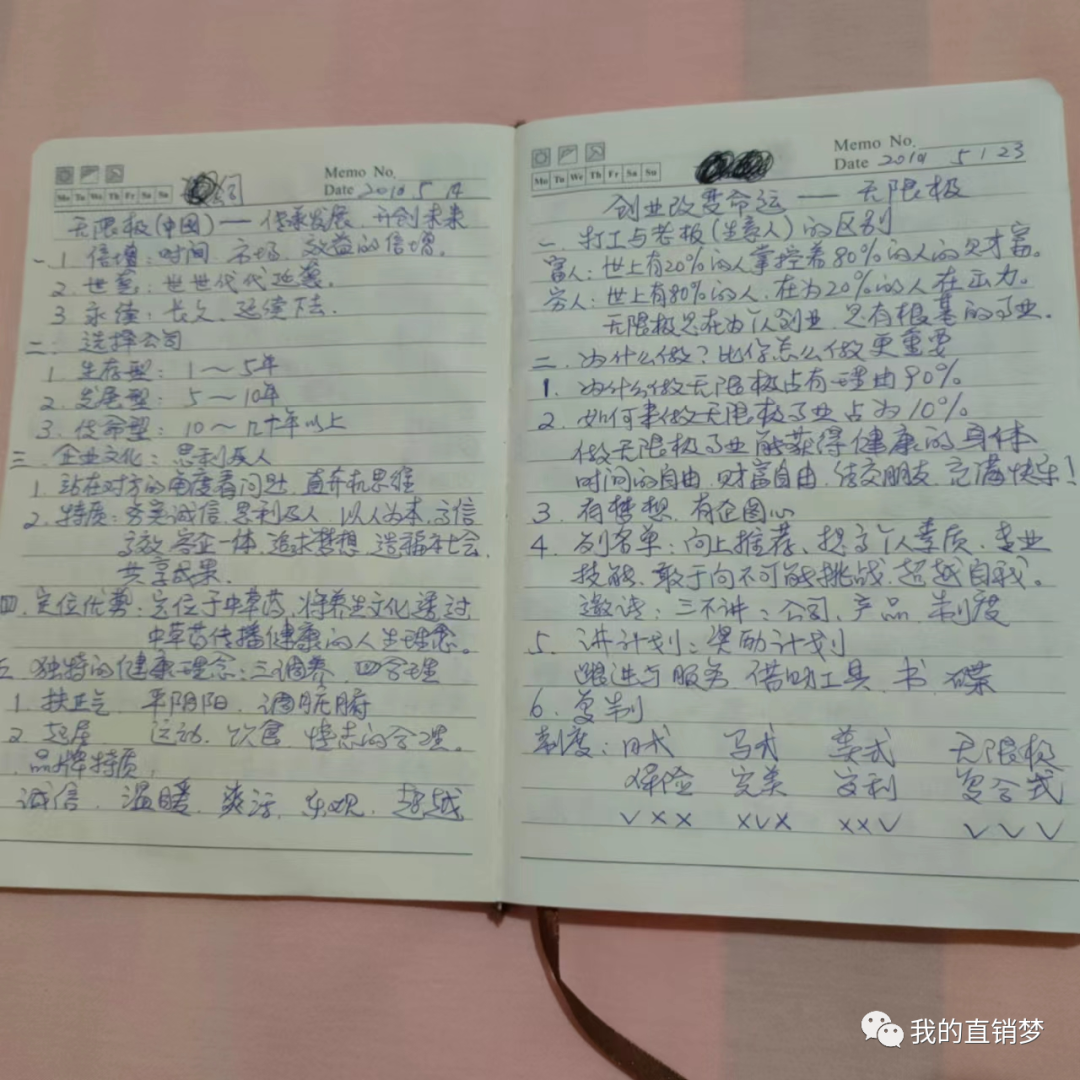 Memo No.
Mo Tu We Th Fr Sa Su
Date 2019 5 14
无限极(中国)一传承发展、开创未来
一1.倍增:时间、市场、效益的倍增。
2.世袭:世世代代延袭。
3.永续:长久、延续下去。
二、选择公司
1.生存型:1~5年
2.发展型:5~10年
3.使命型:10~几十年以上
三、企业文化:思利及人
1.站在对方的角度看问题、直升机思维
2.特质:务实诚信、思利及人、以人为本、守信
高效、客企一体、追求梦想、造福社会、
共享成果.
四.定位优势:定位于中草药、将养生文化透过
中草药传播健康的人生理念。
五、独特的健康理念:三调养、四合理
1.扶正气、平阴阳、调脏腑
2.起居、运动、饮食、情志的合理。
品牌特质、
诚信、温暖、爽活、乐观、超越
Memo No.
Mo Tu We Th Fr Sa Su
Date 2019 5 1 23
创业改变命运——无限极
一、打工与老板(生意人)的区别
富人:世上有20%的人掌控着80%的人的财富。
穷人:世上有80%的人、在为20%的人在出力。
无限极思在为人创业、只有根基的事业.
二、为什么做?比你怎么做更重要
1.为什么做无限极占有理由90%
2.如何来做无限极事业占为10%.
做无限极事业能获得健康的身体
时间的自由、财富自由、结交朋友、充满快乐!
3.有梦想、有企图心
4.列名单:向上推荐、提高个人素质、专业
技能、敢于向不可能挑战、超越自我。
邀请:三不讲:公司、产品、制度
5.讲计划:奖励计划
跟进与服务、借助工具、书、碟
6.复制
制度:日式 马式 美式 无限极
保险 完美 安利 复合式
√×× ×√× ××√ √√√
我的直销梦